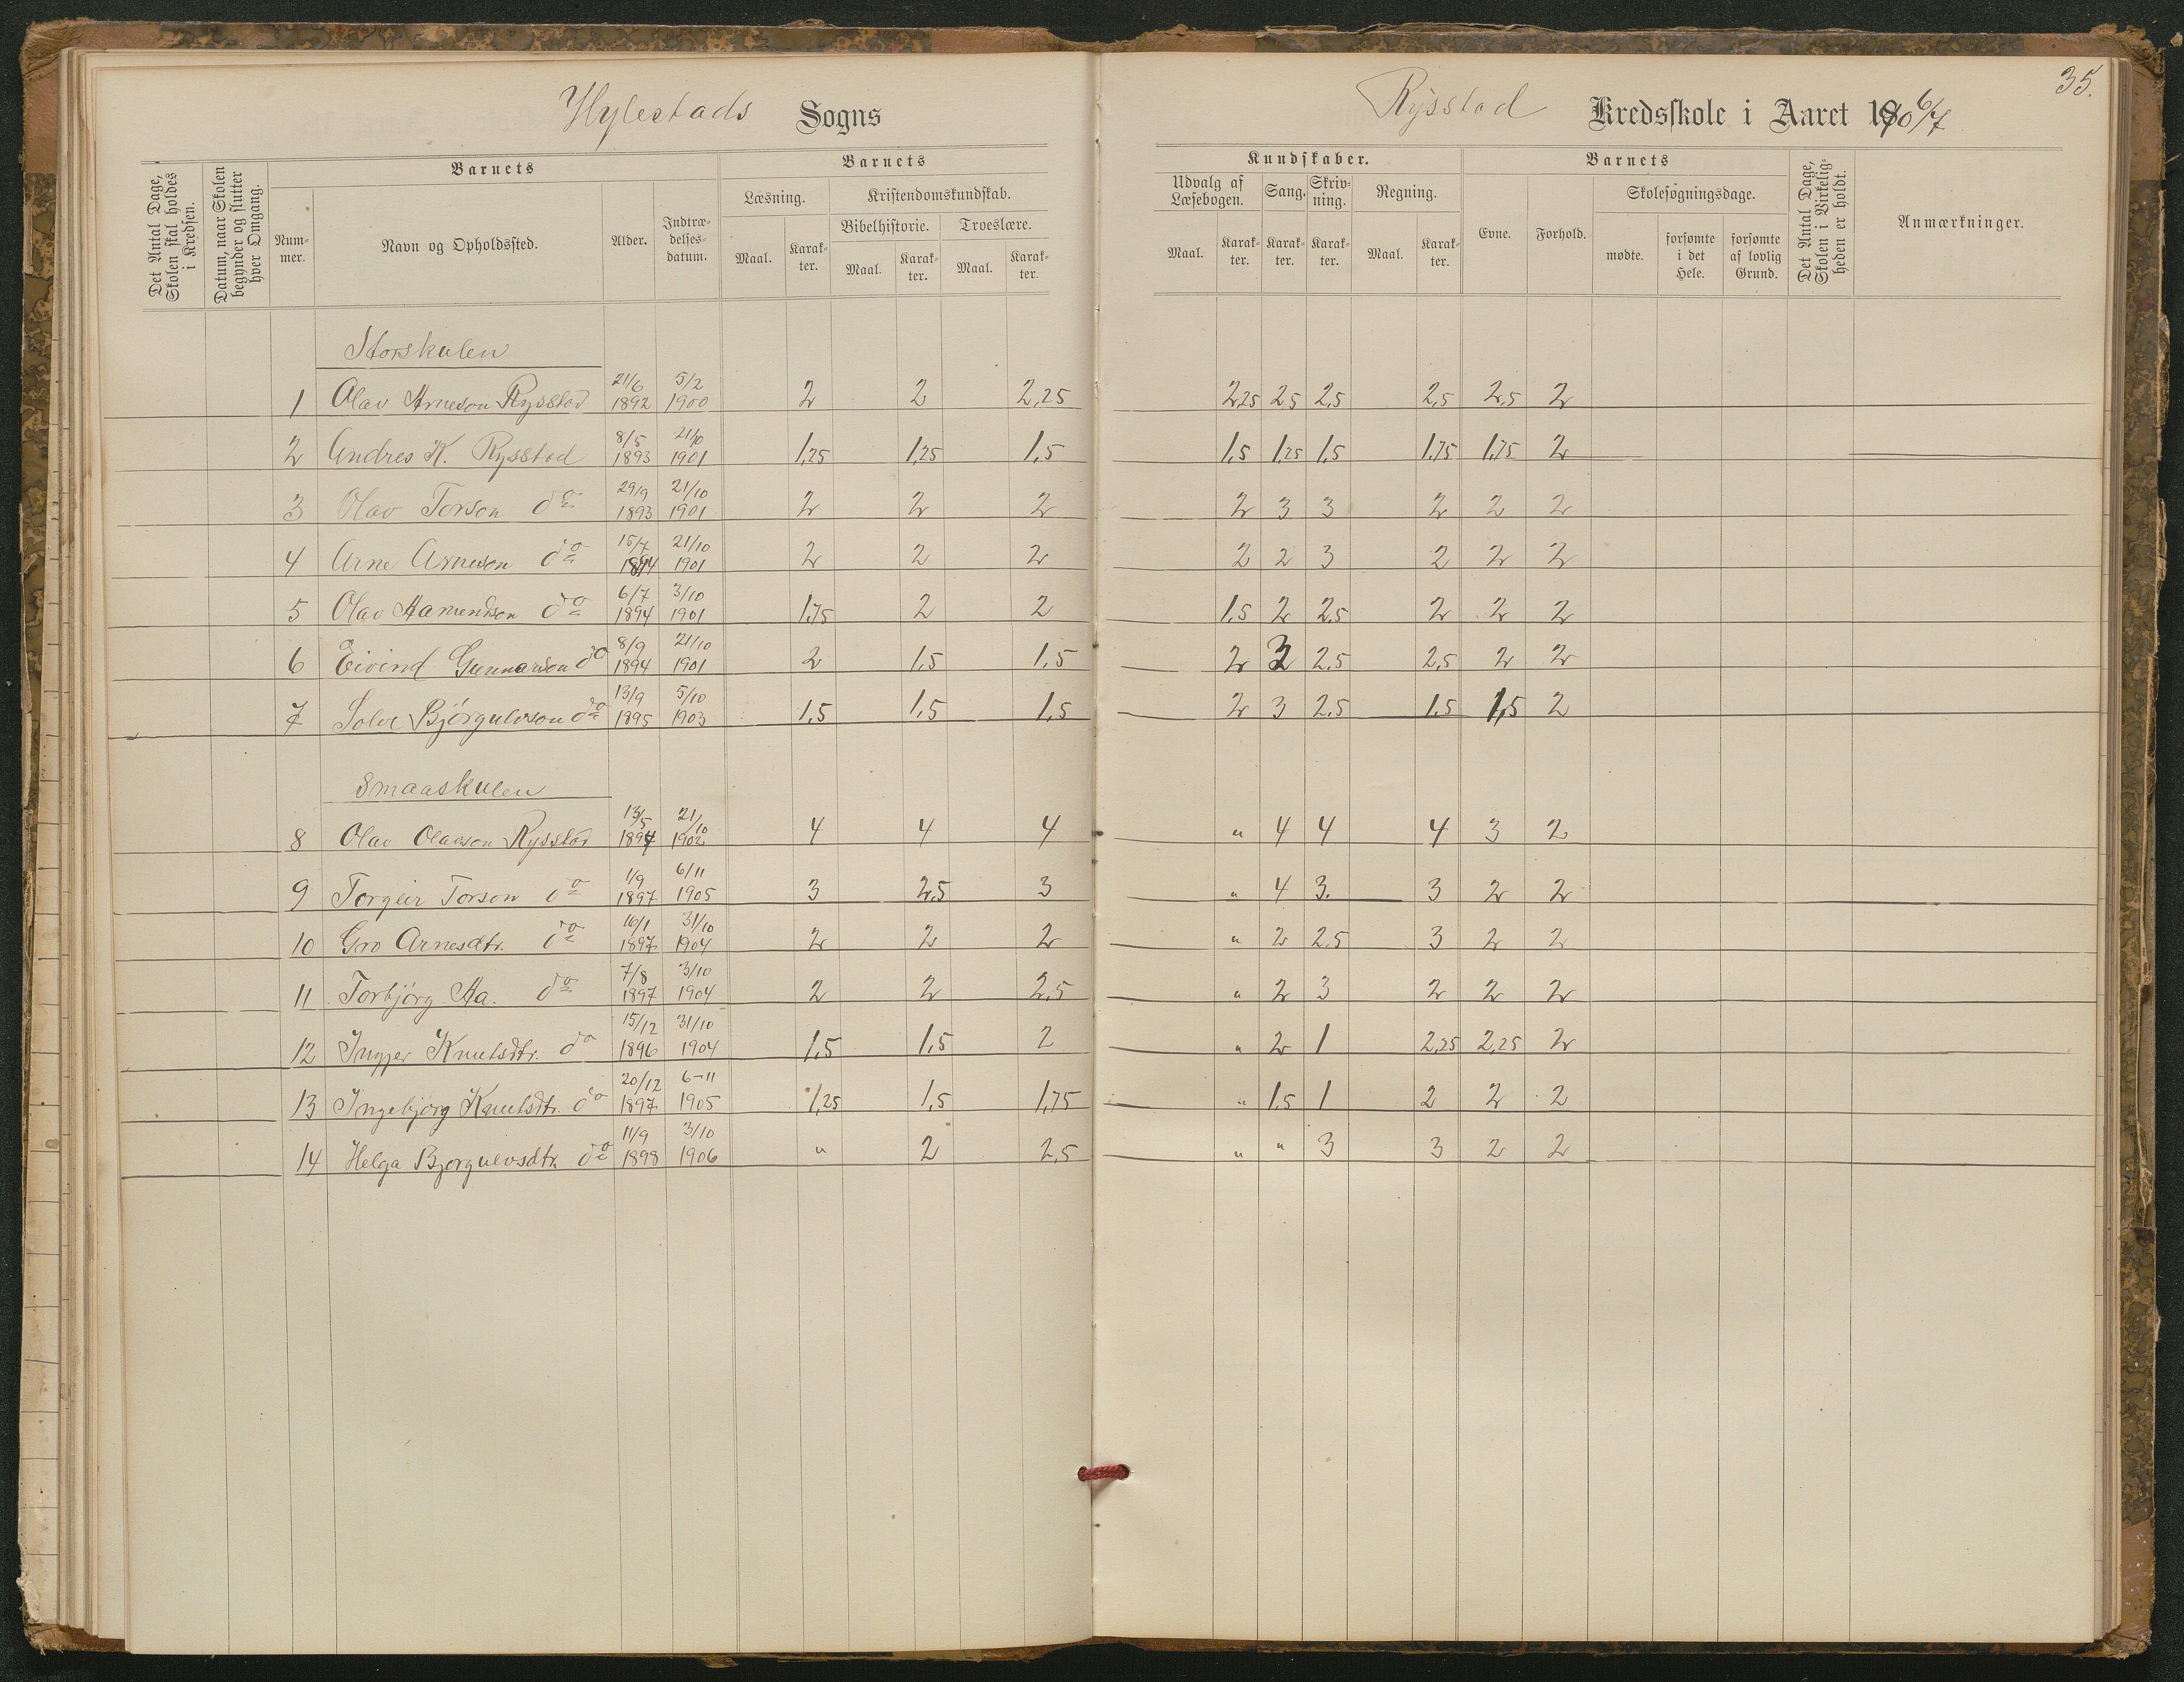 35.
Hylestads Sogns
Rysstad Kredsskole i Aaret 1906/7
Det Antal Dage, Skolen skal holdes i Kredsen.
Datum, naar Skolen begynder og slutter hver Omgang.
Barnets
Num-
mer.
Navn og Opholdssted.
Alder.
Indtræ-
delses-
datum.
Barnets
Læsning.
Kristendomskundskab.
Bibelhistorie.
Troeslære.
Maal.
Karak-
ter.
Maal.
Karak-
ter.
Maal.
Karak-
ter.
Kundskaber.
Udvalg af
Læsebogen.
Sang.
Skriv-
ning.
Regning.
Maal.
Karak-
ter.
Karak-
ter.
Karak-
ter.
Maal.
Karak-
ter.
Barnets
Evne.
Forhold.
Skolesøgningsdage.
mødte.
forsømte
i det
Hele.
forsømte
af lovlig
Grund.
Det Antal Dage, Skolen i Virkelig-
heden er holdt.
Anmærkninger.
Storskulen
1 Olav Arneson Rysstad 21/6 1892 5/2 1900 2 2 2,25 2,25 2,5 2,5 2,5 2,5 2
2 Andres K. Rysstad 8/5 1893 21/10 1901 1,25 1,25 1,5 1,5 1,25 1,5 1,75 1,75 2
3 Olav Torson do 29/9 1893 21/10 1901 2 2 2 2 3 3 2 2 2
4 Arne Arneson do 15/7 1894 21/10 1901 2 2 2 2 2 3 2 2 2
5 Olav Aamundson do 6/7 1894 3/10 1901 1,75 2 2 1,5 2 2,5 2 2 2
6 Eivind Gunnarson do 8/9 1894 21/10 1901 2 1,5 1,5 2 3 2,5 2,5 2 2
7 Solve Bjørgulvson do 13/9 1895 5/10 1903 1,5 1,5 1,5 2 3 2,5 1,5 1,5 2
Smaaskulen
8 Olav Olavson Rysstad 13/5 1894 21/10 1902 4 4 4 " 4 4 4 3 2
9 Torgeir Torson do 1/9 1897 6/11 1905 3 2,5 3 " 4 3. 3 2 2
10 Gro Arnesdtr. do 16/1 1897 31/10 1904 2 2 2 " 2 2,5 3 2 2
11 Torbjørg Aa. do 7/8 1897 3/10 1904 2 2 2,5 " 2 3 2 2 2
12 Ingjer Knutsdtr. do 15/12 1896 31/10 1904 1,5 1,5 2 " 2 1 2,25 2,25 2
13 Ingebjørg Knutsdtr. do 20/12 1897 6-11 1905 1,25 1,5 1,75 " 1,5 1 2 2 2
14 Helga Bjorgulvsdtr. do 11/9 1898 3/10 1906 " 2 2,5 " " 3 3 2 2